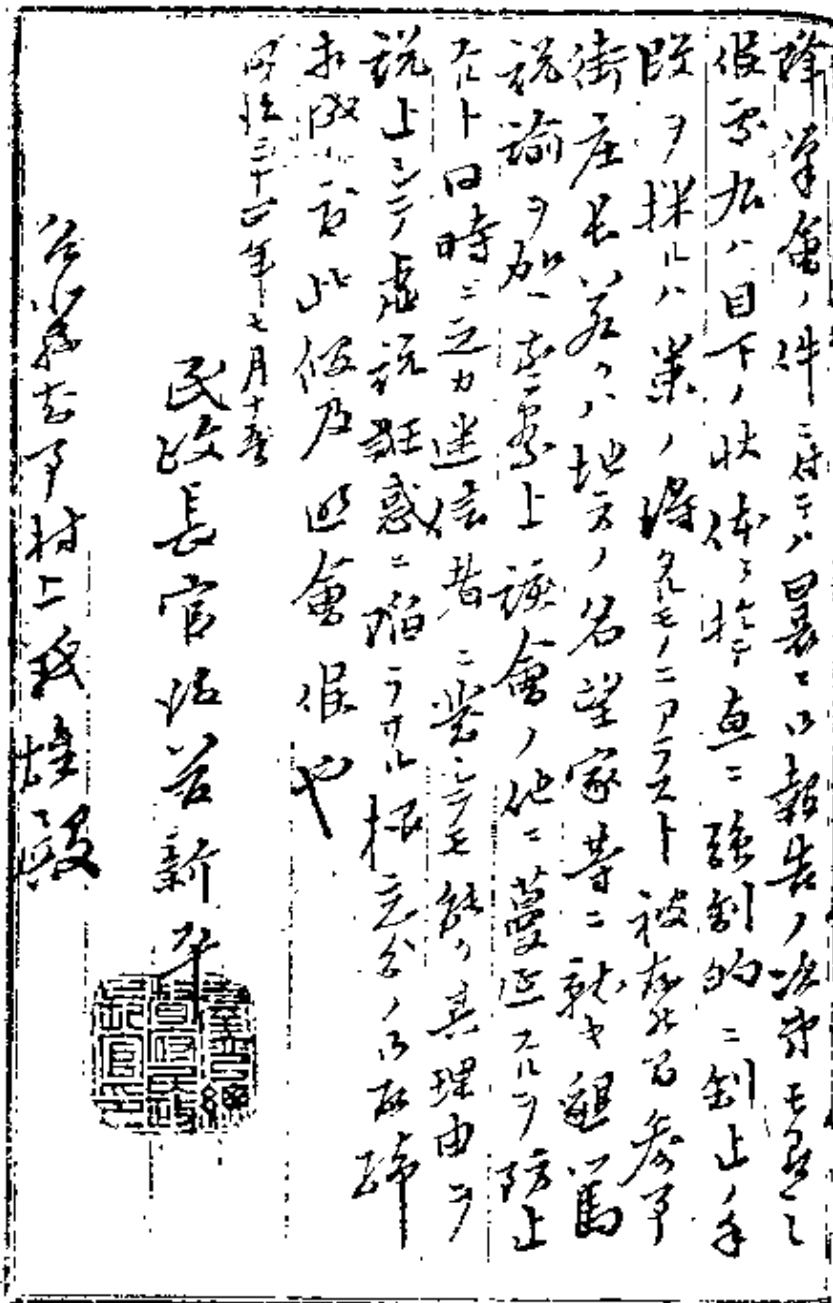 降筆會ノ件ニ付テハ曩ニ御報告ノ次第モ有之
候處右ハ目下ノ状体ニ於テ直ニ強制的ニ制止ノ手
段ヲ採ルハ策ノ得タルモノニアラスト被存候間参事
街庄長若クハ地方ノ名望家等ニ就キ懇篤
説諭ヲ加ヘ事実上該會ノ他ニ蔓延スルヲ防止
スルト同時ニ之カ迷信者ニ対シテモ能ク其理由ヲ
説上シテ虚説誑惑ニ陥ラサル様充分ノ御配碲
相成度此段及照會候也
明治三十四年七月十
民政長官後藤新平
臺灣總督府民政長官印
知事村上義雄殿